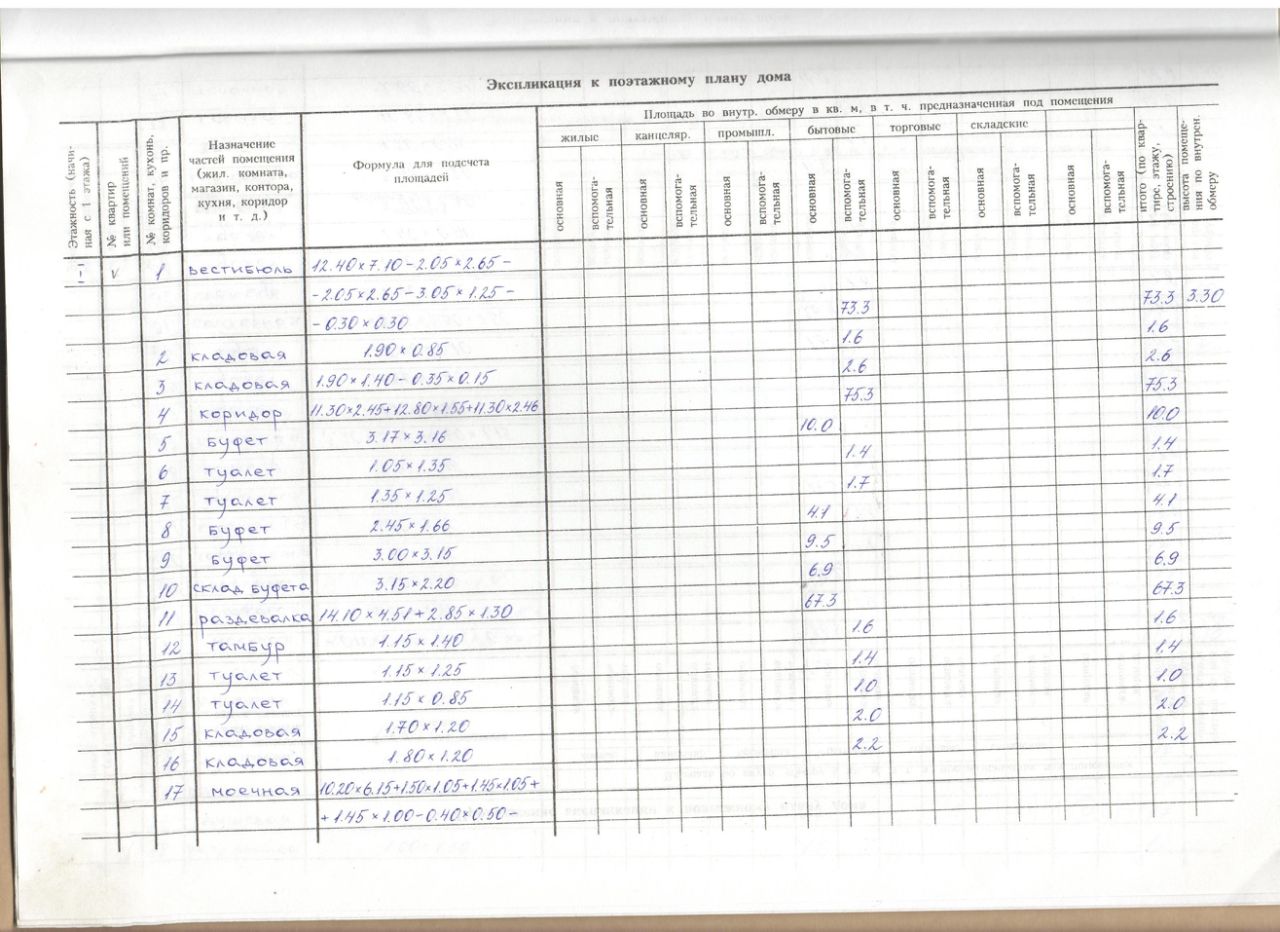 Экспликация к поэтажному плану дома
Площадь во внутр. обмеру в кв. м, в т. ч. предназначенная под помещения
Этажность (начиная с 1 этажа)
№ квартир или помещений
№ комнат, кухонь, коридоров и пр.
Назначение
частей помещения
(жил. комната,
магазин, контора,
кухня, коридор
и т. д.)
Формула для подсчета
площадей
жилые канцеляр. промышл. бытовые торговые складские
основная вспомогательная основная вспомогательная основная вспомогательная основная вспомогательная основная вспомогательная основная вспомогательная основная вспомогательная
итого (по квартире, этажу, строению)
высота помещения по внутрен. обмеру
I V 1 вестибюль 12.40×7.10−2.05×2.65−
−2.05×2.65−3.05×1.25− 73.3 73.3 3.30
−0.30×0.30
2 кладовая 1.90×0.85 1.6 1.6
3 кладовая 1.90×1.40−0.35×0.15 2.6 2.6
4 коридор 11.30×2.45+12.80×1.55+11.30×2.46 75.3 75.3
5 буфет 3.17×3.16 10.0 10.0
6 туалет 1.05×1.35 1.4 1.4
7 туалет 1.35×1.25 1.7 1.7
8 буфет 2.45×1.66 4.1 4.1
9 буфет 3.00×3.15 9.5 9.5
10 склад буфета 3.15×2.20 6.9 6.9
11 раздевалка 14.10×4.51+2.85×1.30 67.3 67.3
12 тамбур 1.15×1.40 1.6 1.6
13 туалет 1.15×1.25 1.4 1.4
14 туалет 1.15×0.85 1.0 1.0
15 кладовая 1.70×1.20 2.0 2.0
16 кладовая 1.80×1.20 2.2 2.2
17 моечная 10.20×6.15+1.50×1.05+1.45×1.05+
+1.45×1.00−0.40×0.50−